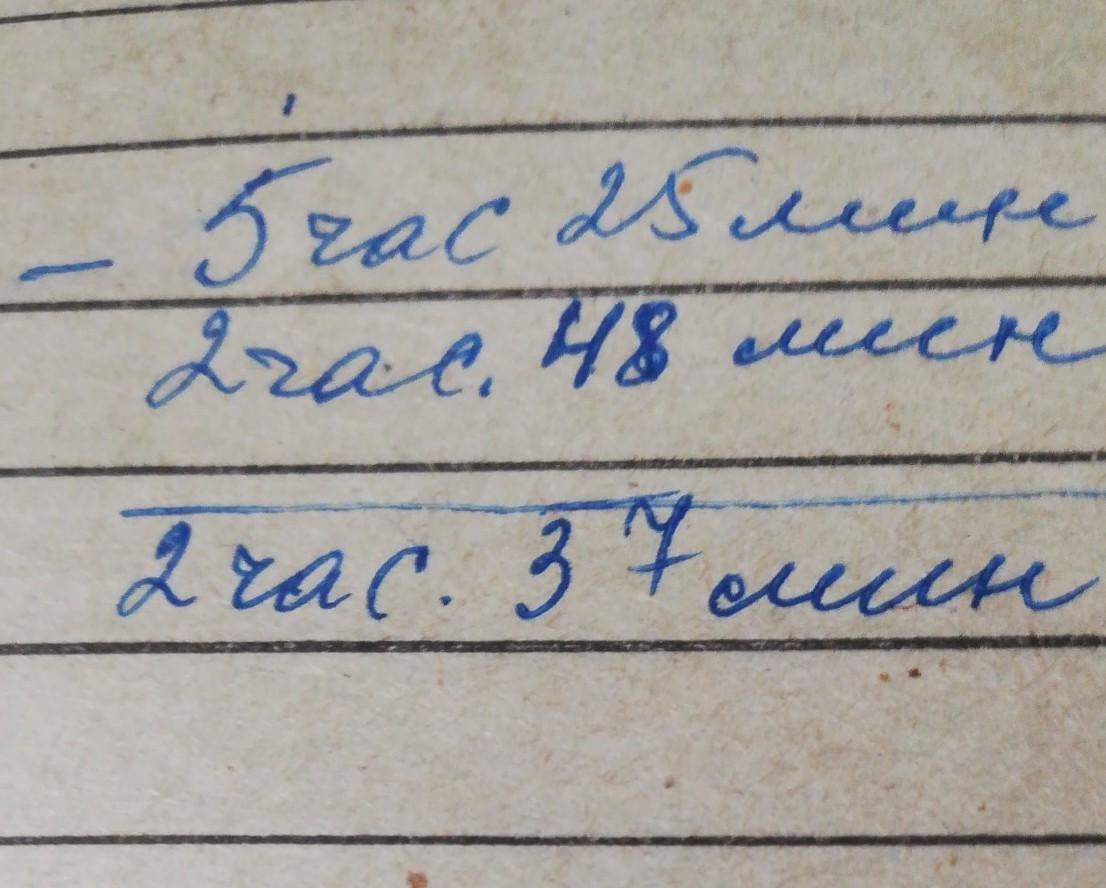 - 5 час 25 мин
2 час. 48 мин
2 час. 37 мин